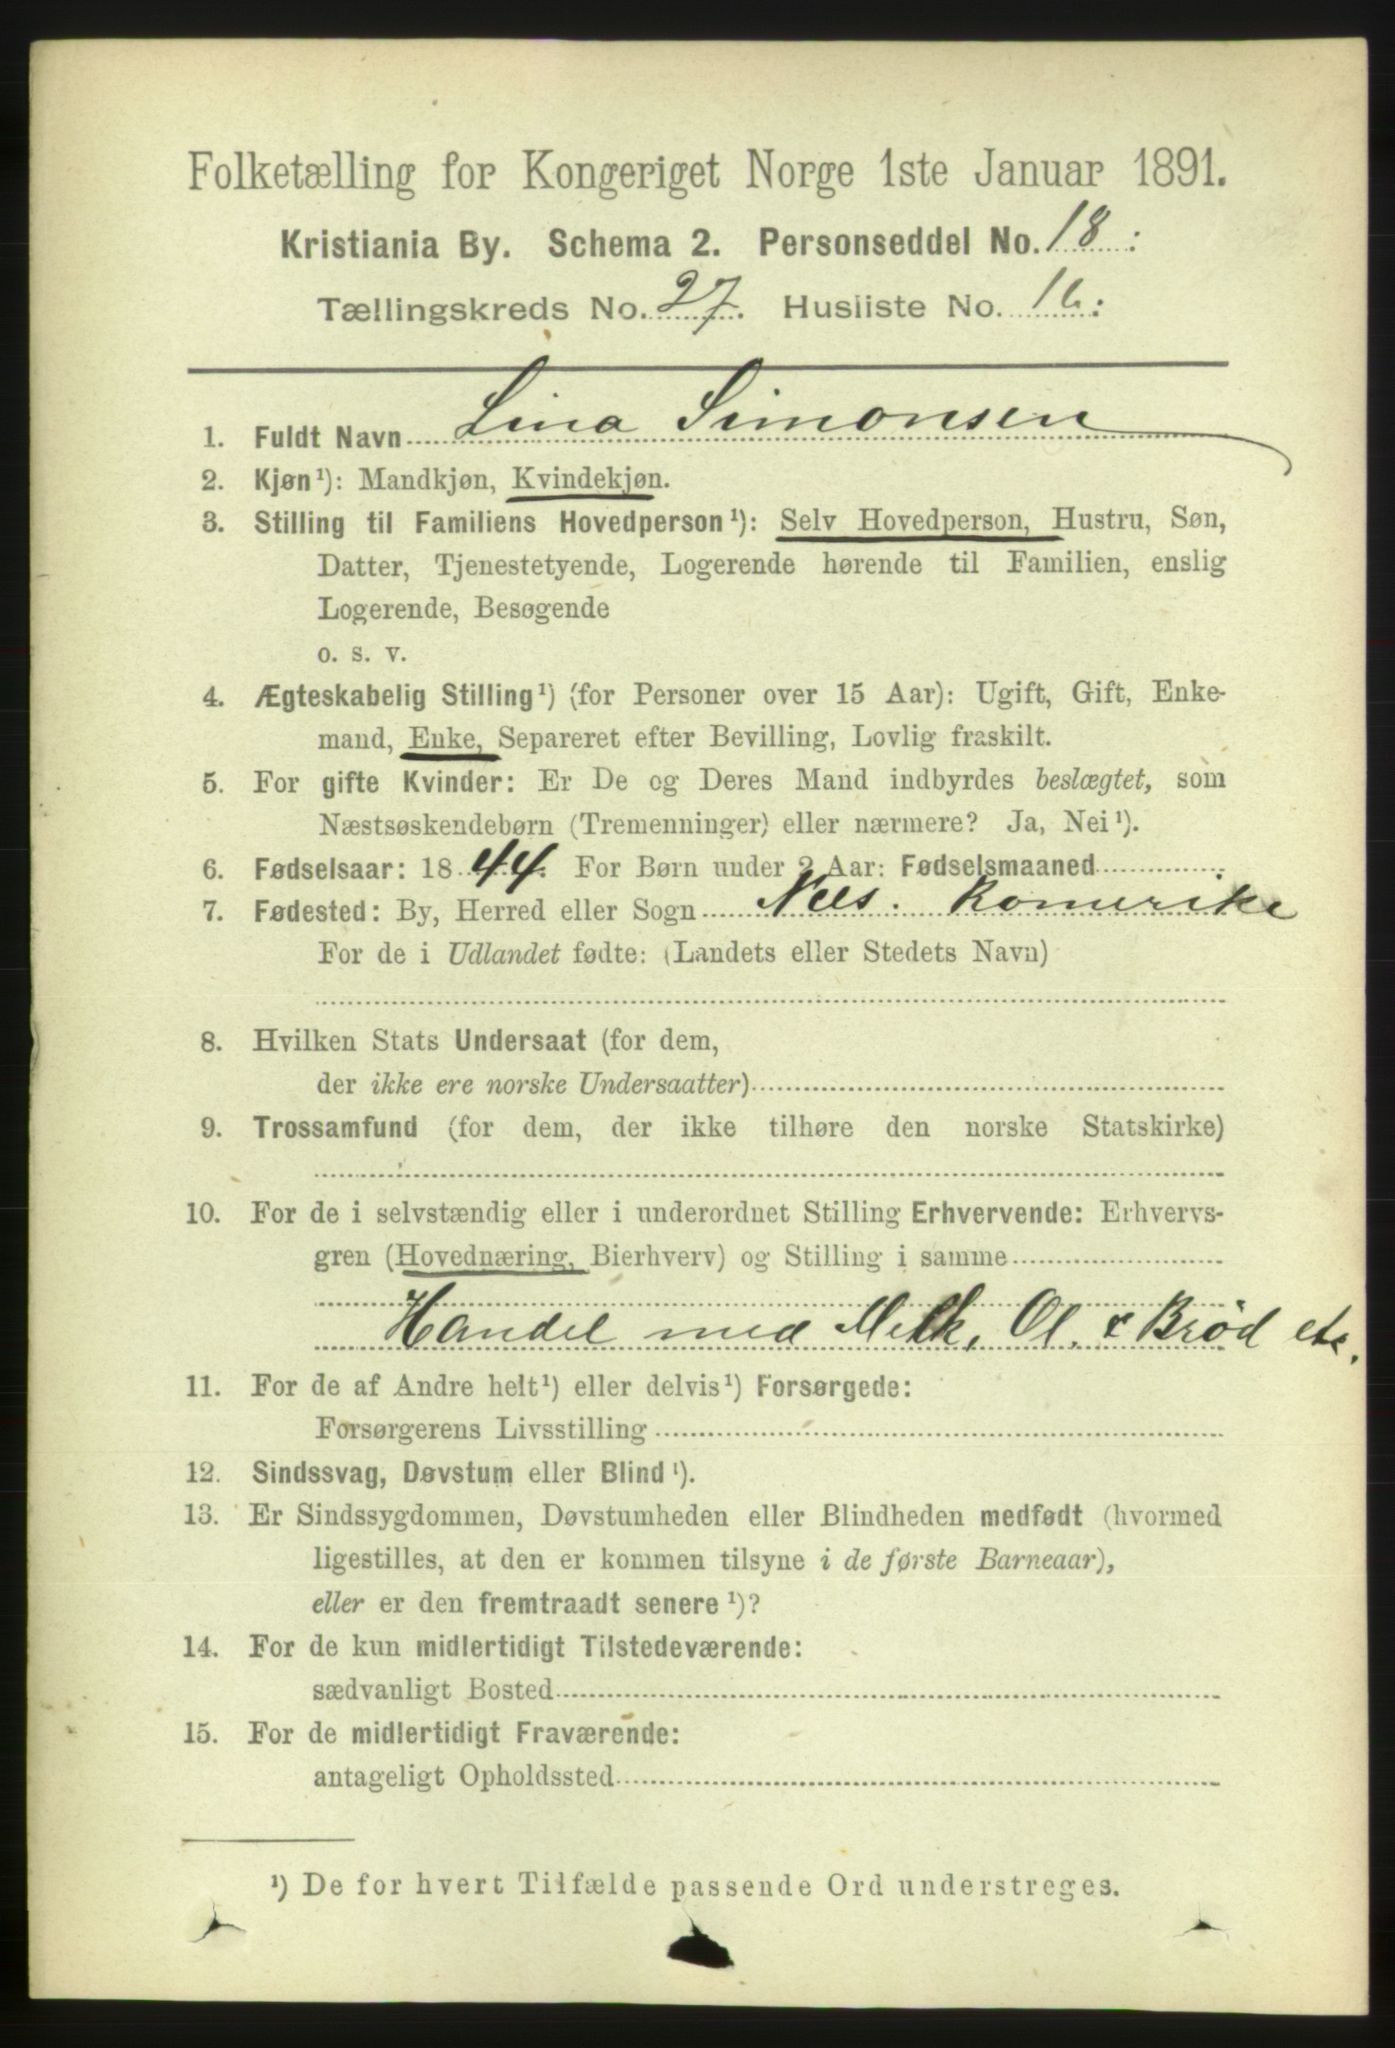 Folketælling for Kongeriget Norge 1ste Januar 1891.
Kristiania By. Schema 2. Personseddel No. 18.
Tællingskreds No. 27. Husliste No. 16.
1. Fuldt Navn Lina Simonsen
2. Kjøn¹): Mandkjøn, Kvindekjøn.
3. Stilling til Familiens Hovedperson¹): Selv Hovedperson, Hustru, Søn,
Datter, Tjenestetyende, Logerende hørende til Familien, enslig
Logerende, Besøgende
o. s. v.
4. Ægteskabelig Stilling¹) (for Personer over 15 Aar): Ugift, Gift, Enke-
mand, Enke, Separeret efter Bevilling, Lovlig fraskilt.
5. For gifte Kvinder: Er De og Deres Mand indbyrdes beslægtet, som
Næstsøskendebørn (Tremenninger) eller nærmere? Ja, Nei¹).
6. Fødselsaar: 1844. For Børn under 2 Aar: Fødselsmaaned
7. Fødested: By, Herred eller Sogn Næs. Romerike
For de i Udlandet fødte: (Landets eller Stedets Navn)
8. Hvilken Stats Undersaat (for dem,
der ikke ere norske Undersaatter)
9. Trossamfund (for dem, der ikke tilhøre den norske Statskirke)
10. For de i selvstændig eller i underordnet Stilling Erhvervende: Erhvervs-
gren (Hovednæring, Bierhverv) og Stilling i samme
Handel med Melk, Ol. & Brød etc.
11. For de af Andre helt¹) eller delvis¹) Forsørgede:
Forsørgerens Livsstilling
12. Sindssvag, Døvstum eller Blind¹).
13. Er Sindssygdommen, Døvstumheden eller Blindheden medfødt (hvormed
ligestilles, at den er kommen tilsyne i de første Barneaar),
eller er den fremtraadt senere¹)?
14. For de kun midlertidigt Tilstedeværende:
sædvanligt Bosted
15. For de midlertidigt Fraværende:
antageligt Opholdssted
¹) De for hvert Tilfælde passende Ord understreges.